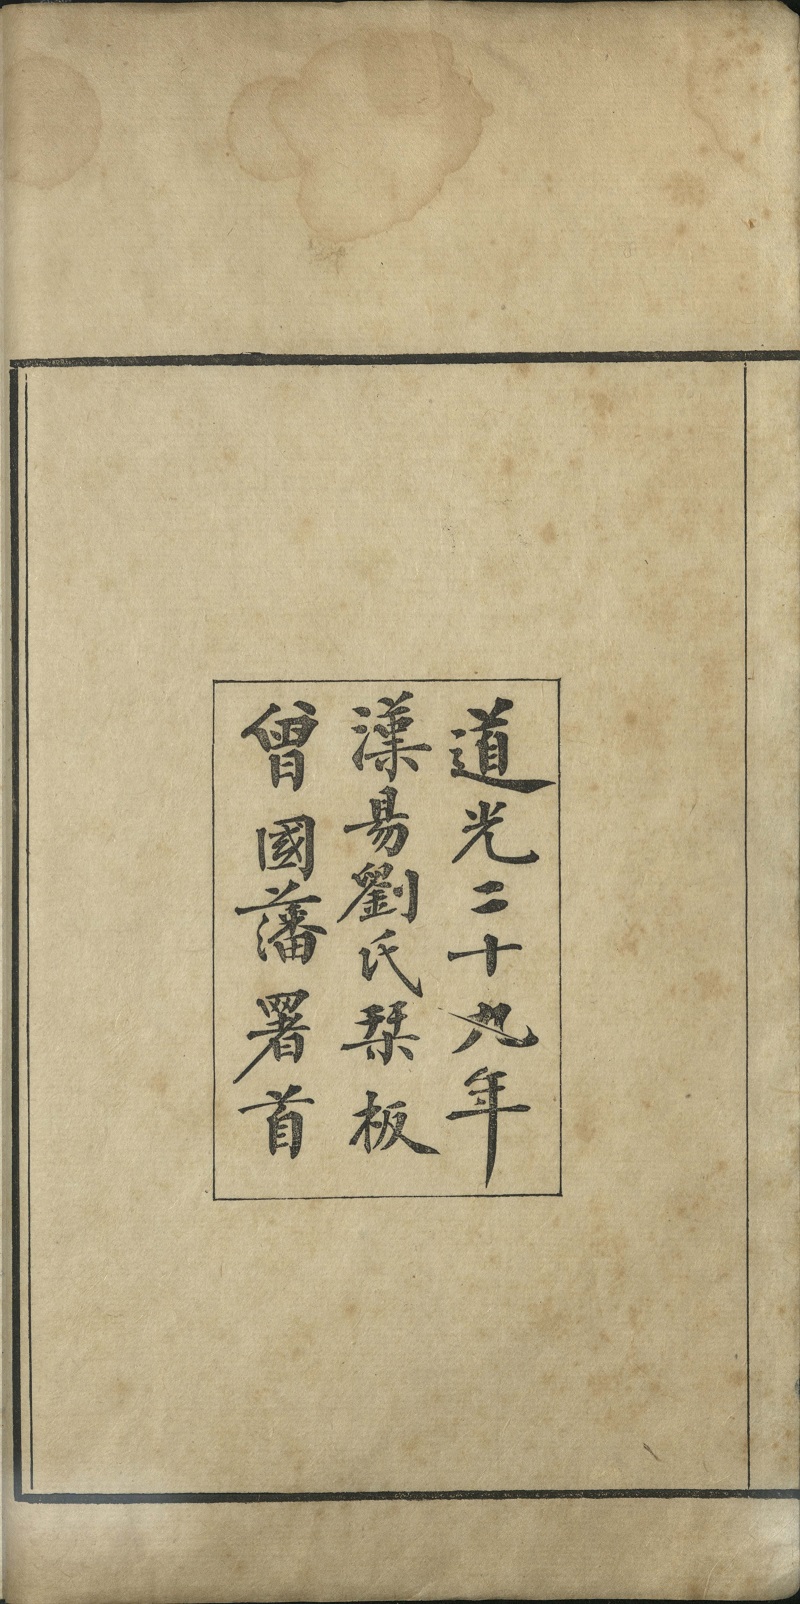 道光二十九年
漢昜劉氏栞板
曾國藩署首